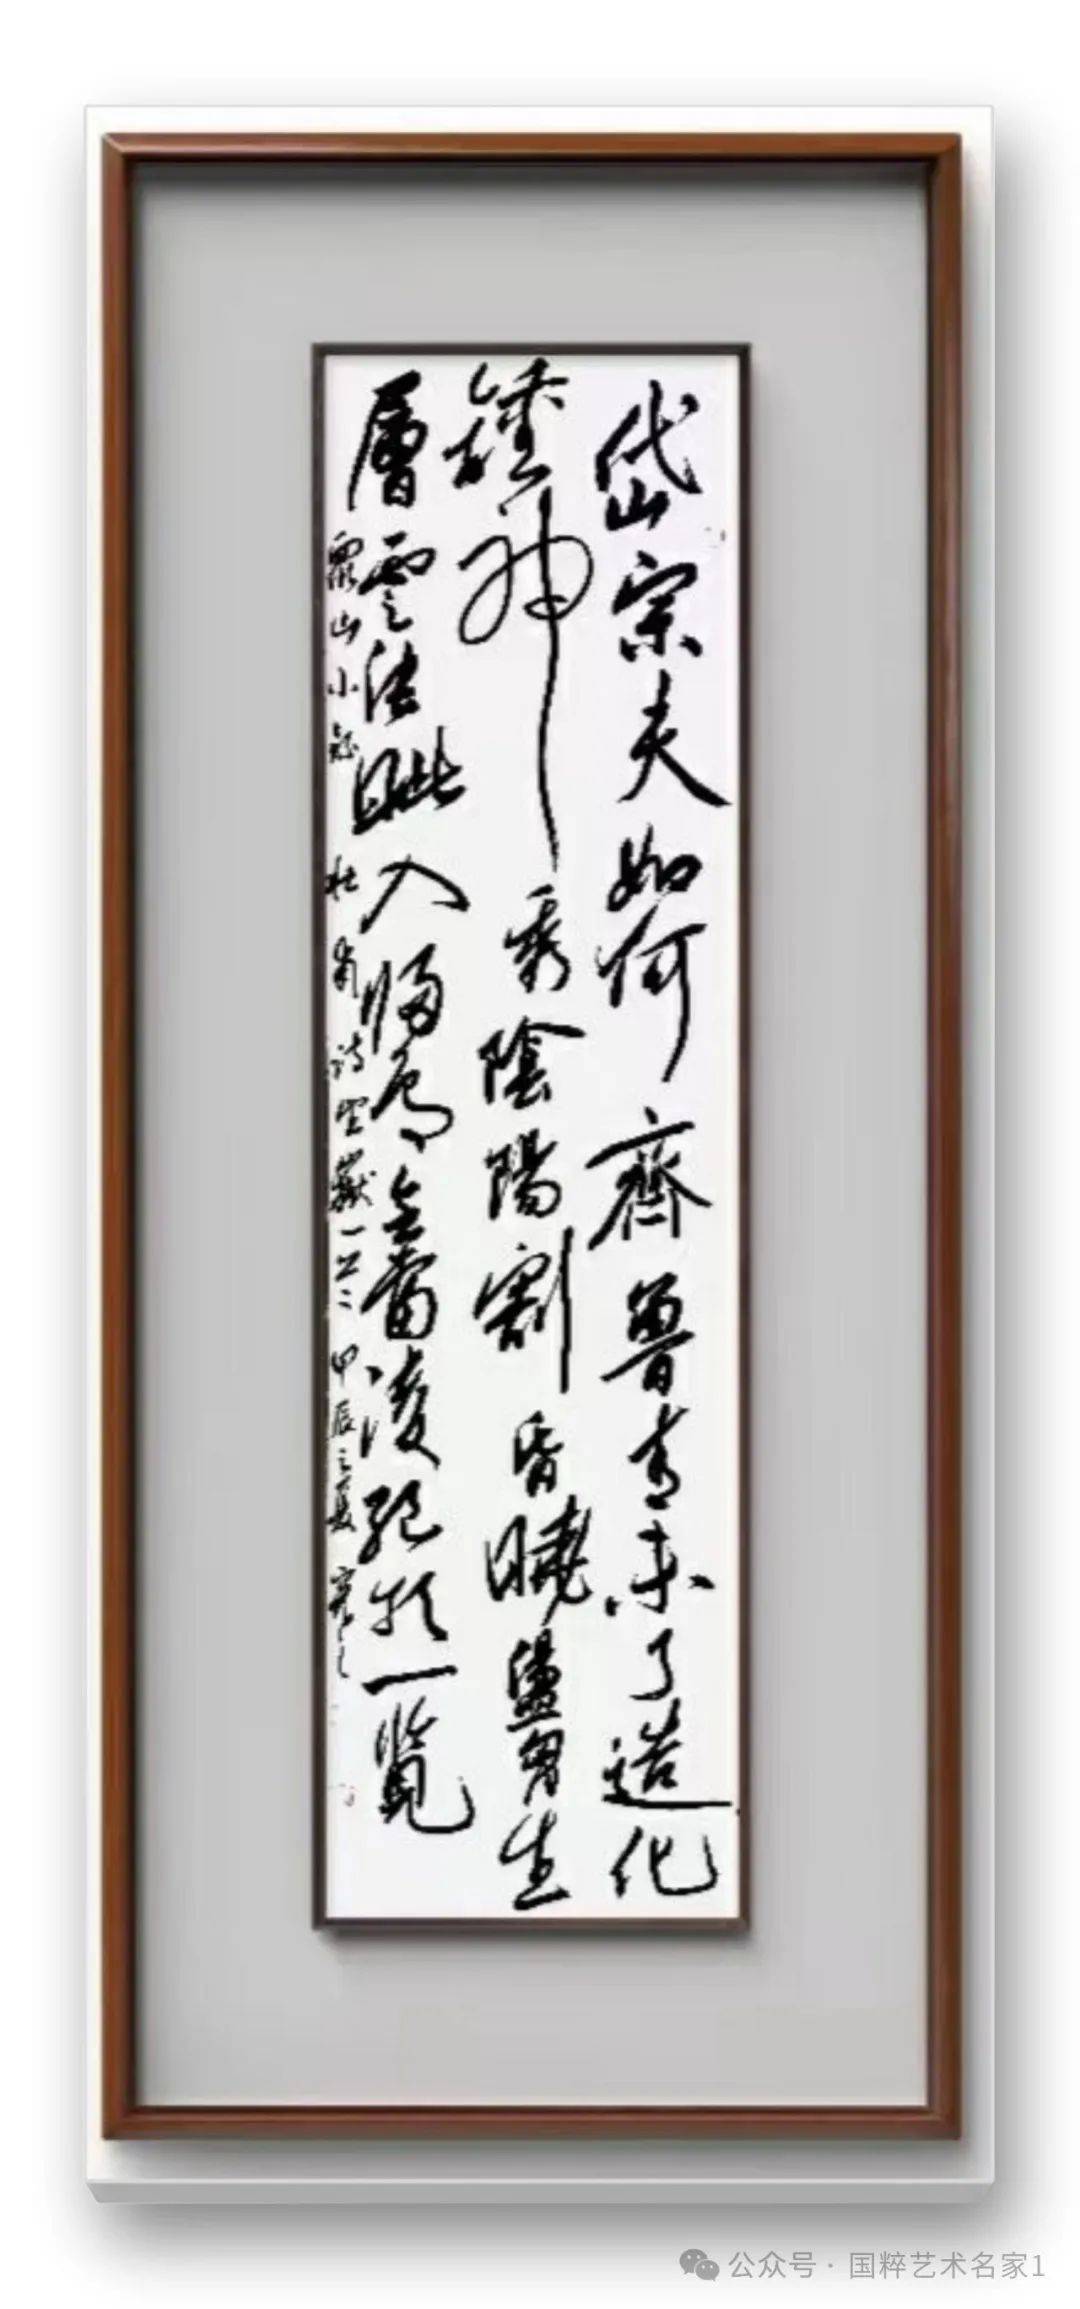 岱宗夫如何齊魯青未了造化
鍾神秀陰陽割昏曉盪胷生
層雲決眦入歸鳥會當凌絕頂一覽
眾山小 杜甫詩望嶽一首 甲辰之夏
公众号 · 国粹艺术名家1